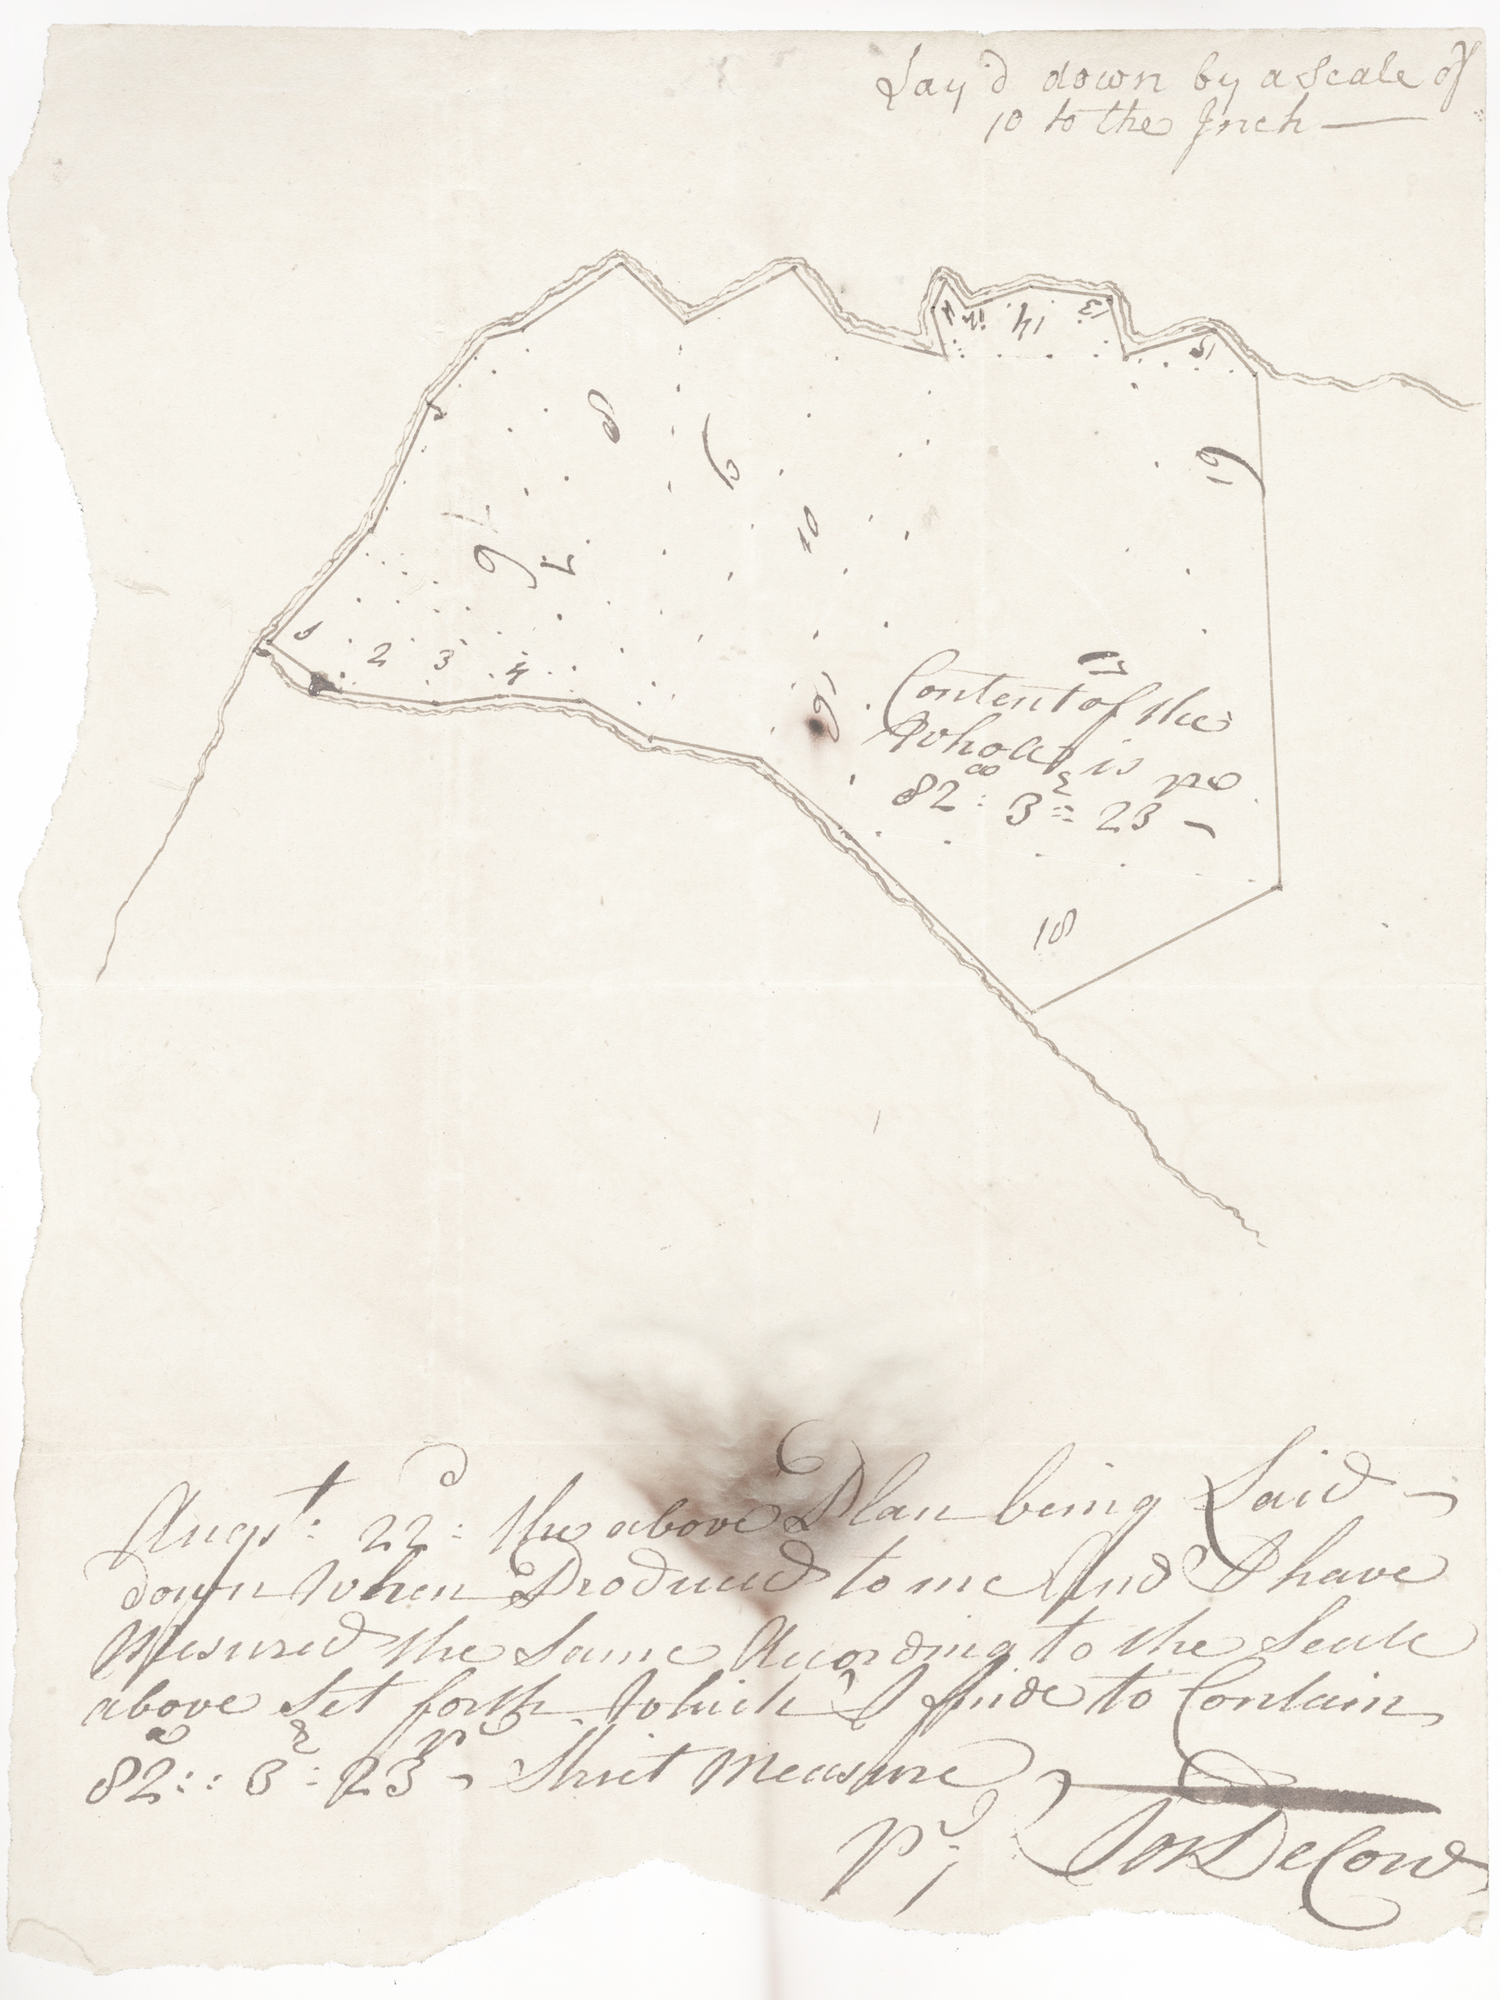 Lay'd down by a Scale of
10 to the Inch —
8
9
14
13
15
19
10
7
6
7
1
2
3
4
16
Content of the
Whole is
82 : 3 = 23 —
18
Augst: 22d: the above Plan being Laid
down When Produced to me And I have
Mesured the Same Acording to the Scale
above Set forth Which I finde to Contain
82 :: 3 : 23 Strict Measure
Pr; Jos DeCow